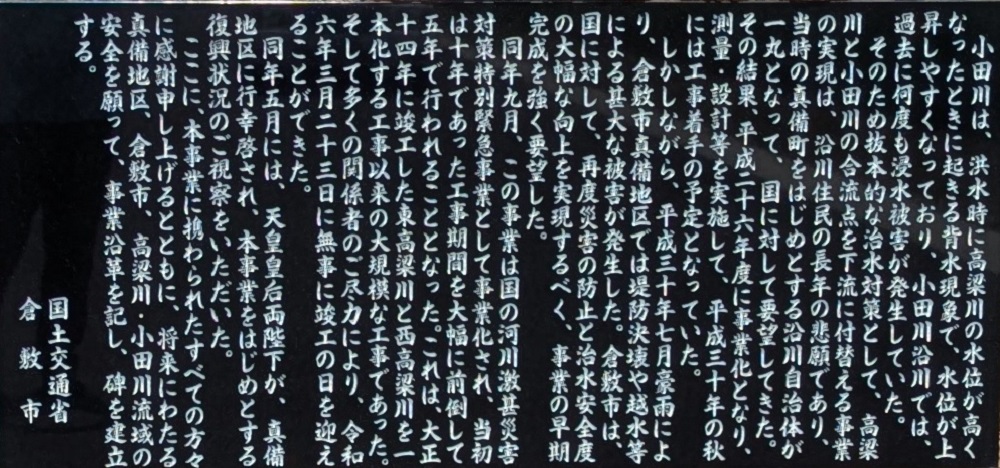 小田川は、洪水時に高梁川の水位が高く
なったときに起きる背水現象で、水位が上
昇しやすくなっており、小田川沿川では、
過去に何度も浸水被害が発生していた。
そのため抜本的な治水対策として、高梁
川と小田川の合流点を下流に付替える事業
の実現は、沿川住民の長年の悲願であり、
当時の真備町をはじめとする沿川自治体が
一丸となって、国に対して要望してきた。
その結果、平成二十六年度に事業化となり、
測量・設計等を実施して、平成三十年の秋
には工事着手の予定となっていた。
しかしながら、平成三十年七月豪雨によ
り、倉敷市真備地区では堤防決壊や越水等
による甚大な被害が発生した。倉敷市は、
国に対して、再度災害の防止と治水安全度
の大幅な向上を実現するべく、事業の早期
完成を強く要望した。
同年九月　この事業は国の河川激甚災害
対策特別緊急事業として事業化され、当初
は十年であった工事期間を大幅に前倒して
五年で行われることとなった。これは、大正
十四年に竣工した東高梁川と西高梁川を一
本化する工事以来の大規模な工事であった。
そして多くの関係者のご尽力により、令和
六年三月二十三日に無事に竣工の日を迎え
ることができた。
同年五月には、天皇皇后両陛下が、真備
地区に行幸啓され、本事業をはじめとする
復興状況のご視察をいただいた。
ここに、本事業に携わられたすべての方々
に感謝申し上げるとともに、将来にわたる
真備地区、倉敷市、高梁川・小田川流域の
安全を願って、事業沿革を記し、碑を建立
する。
国土交通省
倉敷市